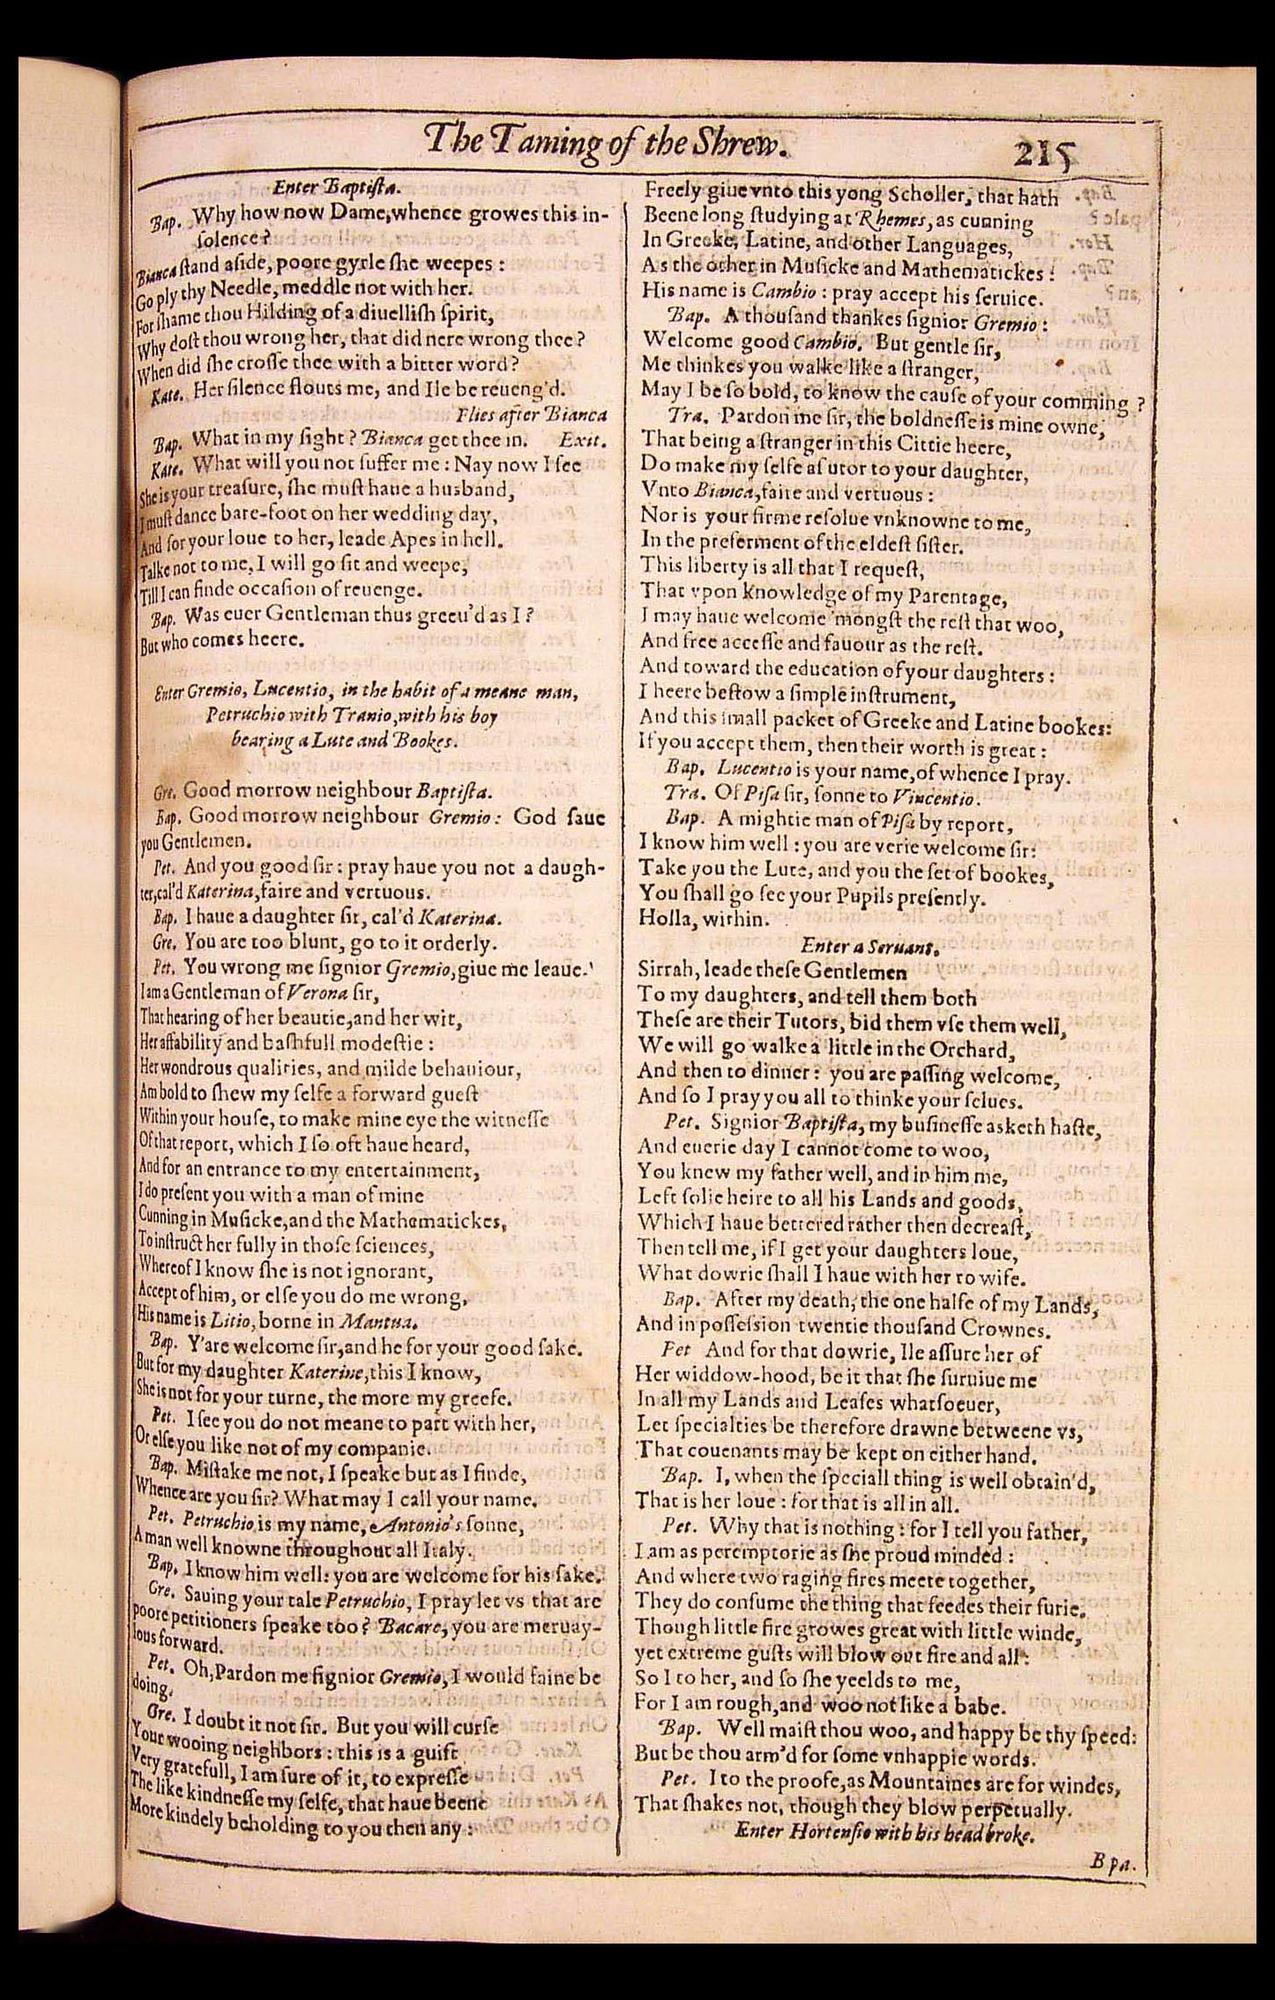 The Taming of the Shrew. 215
Enter Baptista.
Bap. Why how now Dame, whence growes this in-
solence?
Bianca stand aside, poore gyrle she weepes:
Go ply thy Needle, meddle not with her.
For shame thou Hilding of a diuellish spirit,
Why dost thou wrong her, that did nere wrong thee?
When did she crosse thee with a bitter word?
Kate. Her silence flouts me, and Ile be reueng'd.
Flies after Bianca
Bap. What in my sight? Bianca get thee in. Exit.
Kate. What will you not suffer me: Nay now I see
She is your treasure, she must haue a husband,
I must dance bare-foot on her wedding day,
And for your loue to her, leade Apes in hell.
Talke not to me, I will go sit and weepe,
Till I can finde occasion of reuenge.
Bap. Was euer Gentleman thus greeu'd as I?
But who comes heere.
Enter Gremio, Lucentio, in the habit of a meane man,
Petruchio with Tranio, with his boy
bearing a Lute and Bookes.
Gre. Good morrow neighbour Baptista.
Bap. Good morrow neighbour Gremio: God saue
you Gentlemen.
Pet. And you good sir: pray haue you not a daugh-
ter, cal'd Katerina, faire and vertuous.
Bap. I haue a daughter sir, cal'd Katerina.
Gre. You are too blunt, go to it orderly.
Pet. You wrong me signior Gremio, giue me leaue.
I am a Gentleman of Verona sir,
That hearing of her beautie, and her wit,
Her affability and bashfull modestie:
Her wondrous qualities, and milde behauiour,
Am bold to shew my selfe a forward guest
Within your house, to make mine eye the witnesse
Of that report, which I so oft haue heard,
And for an entrance to my entertainment,
I do present you with a man of mine
Cunning in Musicke, and the Mathematickes,
To instruct her fully in those sciences,
Whereof I know she is not ignorant,
Accept of him, or else you do me wrong,
His name is Litio, borne in Mantua.
Bap. Y'are welcome sir, and he for your good sake.
But for my daughter Katerine, this I know,
She is not for your turne, the more my greefe.
Pet. I see you do not meane to part with her,
Or else you like not of my companie.
Bap. Mistake me not, I speake but as I finde,
Whence are you sir? What may I call your name.
Pet. Petruchio is my name, Antonio's sonne,
A man well knowne throughout all Italy.
Bap. I know him well: you are welcome for his sake.
Gre. Sauing your tale Petruchio, I pray let vs that are
poore petitioners speake too? Bacare, you are meruay-
lous forward.
Pet. Oh, Pardon me signior Gremio, I would faine be
doing.
Gre. I doubt it not sir. But you will curse
Your wooing neighbors: this is a guift
Very gratefull, I am sure of it, to expresse
The like kindnesse my selfe, that haue beene
More kindely beholding to you then any:
Freely giue vnto this yong Scholler, that hath
Beene long studying at Rhemes, as cunning
In Greeke, Latine, and other Languages,
As the other in Musicke and Mathematickes:
His name is Cambio: pray accept his seruice.
Bap. A thousand thankes signior Gremio:
Welcome good Cambio. But gentle sir,
Me thinkes you walke like a stranger,
May I be so bold, to know the cause of your comming?
Tra. Pardon me sir, the boldnesse is mine owne,
That being a stranger in this Cittie heere,
Do make my selfe as utor to your daughter,
Vnto Bianca, faire and vertuous:
Nor is your firme resolue vnknowne to me,
In the preferment of the eldest sister.
This liberty is all that I request,
That vpon knowledge of my Parentage,
I may haue welcome 'mongst the rest that woo,
And free accesse and fauour as the rest.
And toward the education of your daughters:
I heere bestow a simple instrument,
And this small packet of Greeke and Latine bookes:
If you accept them, then their worth is great:
Bap. Lucentio is your name, of whence I pray.
Tra. Of Pisa sir, sonne to Vincentio.
Bap. A mightie man of Pisa by report,
I know him well: you are verie welcome sir:
Take you the Lute, and you the set of bookes,
You shall go see your Pupils presently.
Holla, within.
Enter a Seruant.
Sirrah, leade these Gentlemen
To my daughters, and tell them both
These are their Tutors, bid them vse them well,
We will go walke a little in the Orchard,
And then to dinner: you are passing welcome,
And so I pray you all to thinke your selues.
Pet. Signior Baptista, my businesse asketh haste,
And euerie day I cannot come to woo,
You knew my father well, and in him me,
Left solie heire to all his Lands and goods,
Which I haue bettered rather then decreast,
Then tell me, if I get your daughters loue,
What dowrie shall I haue with her to wife.
Bap. After my death, the one halfe of my Lands,
And in possession twentie thousand Crownes.
Pet And for that dowrie, Ile assure her of
Her widdow-hood, be it that she suruiue me
In all my Lands and Leases whatsoeuer,
Let specialties be therefore drawne betweene vs,
That couenants may be kept on either hand.
Bap. I, when the speciall thing is well obtain'd,
That is her loue: for that is all in all.
Pet. Why that is nothing: for I tell you father,
I am as peremptorie as she proud minded:
And where two raging fires meete together,
They do consume the thing that feedes their furie.
Though little fire growes great with little winde,
yet extreme gusts will blow out fire and all:
So I to her, and so she yeelds to me,
For I am rough, and woo not like a babe.
Bap. Well maist thou woo, and happy be thy speed:
But be thou arm'd for some vnhappie words.
Pet. I to the proofe, as Mountaines are for windes,
That shakes not, though they blow perpetually.
Enter Hortensio with his head broke.
Bpa.